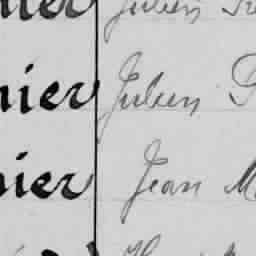 nier Julien
nier Julien P
nier Jean M